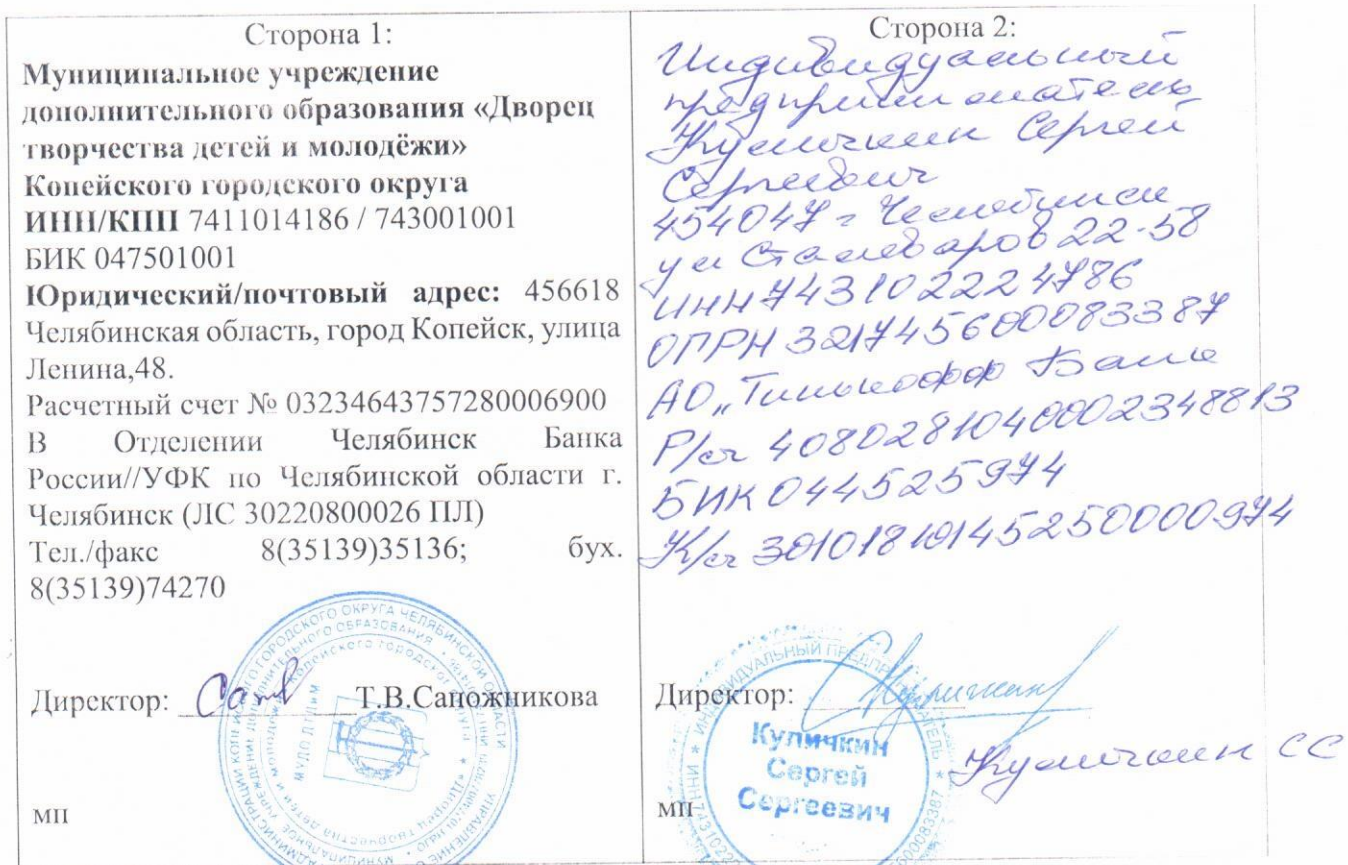 Сторона 1:
Муниципальное учреждение
дополнительного образования «Дворец
творчества детей и молодёжи»
Копейского городского округа
ИНН/КПП 7411014186 / 743001001
БИК 047501001
Юридический/почтовый адрес: 456618
Челябинская область, город Копейск, улица
Ленина,48.
Расчетный счет № 03234643757280006900
В Отделении Челябинск Банка
России//УФК по Челябинской области г.
Челябинск (ЛС 30220800026 ПЛ)
Тел./факс 8(35139)35136; бух.
8(35139)74270
Директор: Т.В.Сапожникова
МП
Сторона 2:
Индивидуальный
предприниматель
Куличкин Сергей
Сергеевич
454047 г Челябинск
ул Сталеваров 22-58
ИНН 743102224786
ОГРН 321745600083387
АО „Тинькофф Банк
Р/сч 40802810400002348813
БИК 044525974
К/сч 30101810145250000974
Директор:
Куличкин СС
МП
Куличкин
Сергей
Сергеевич